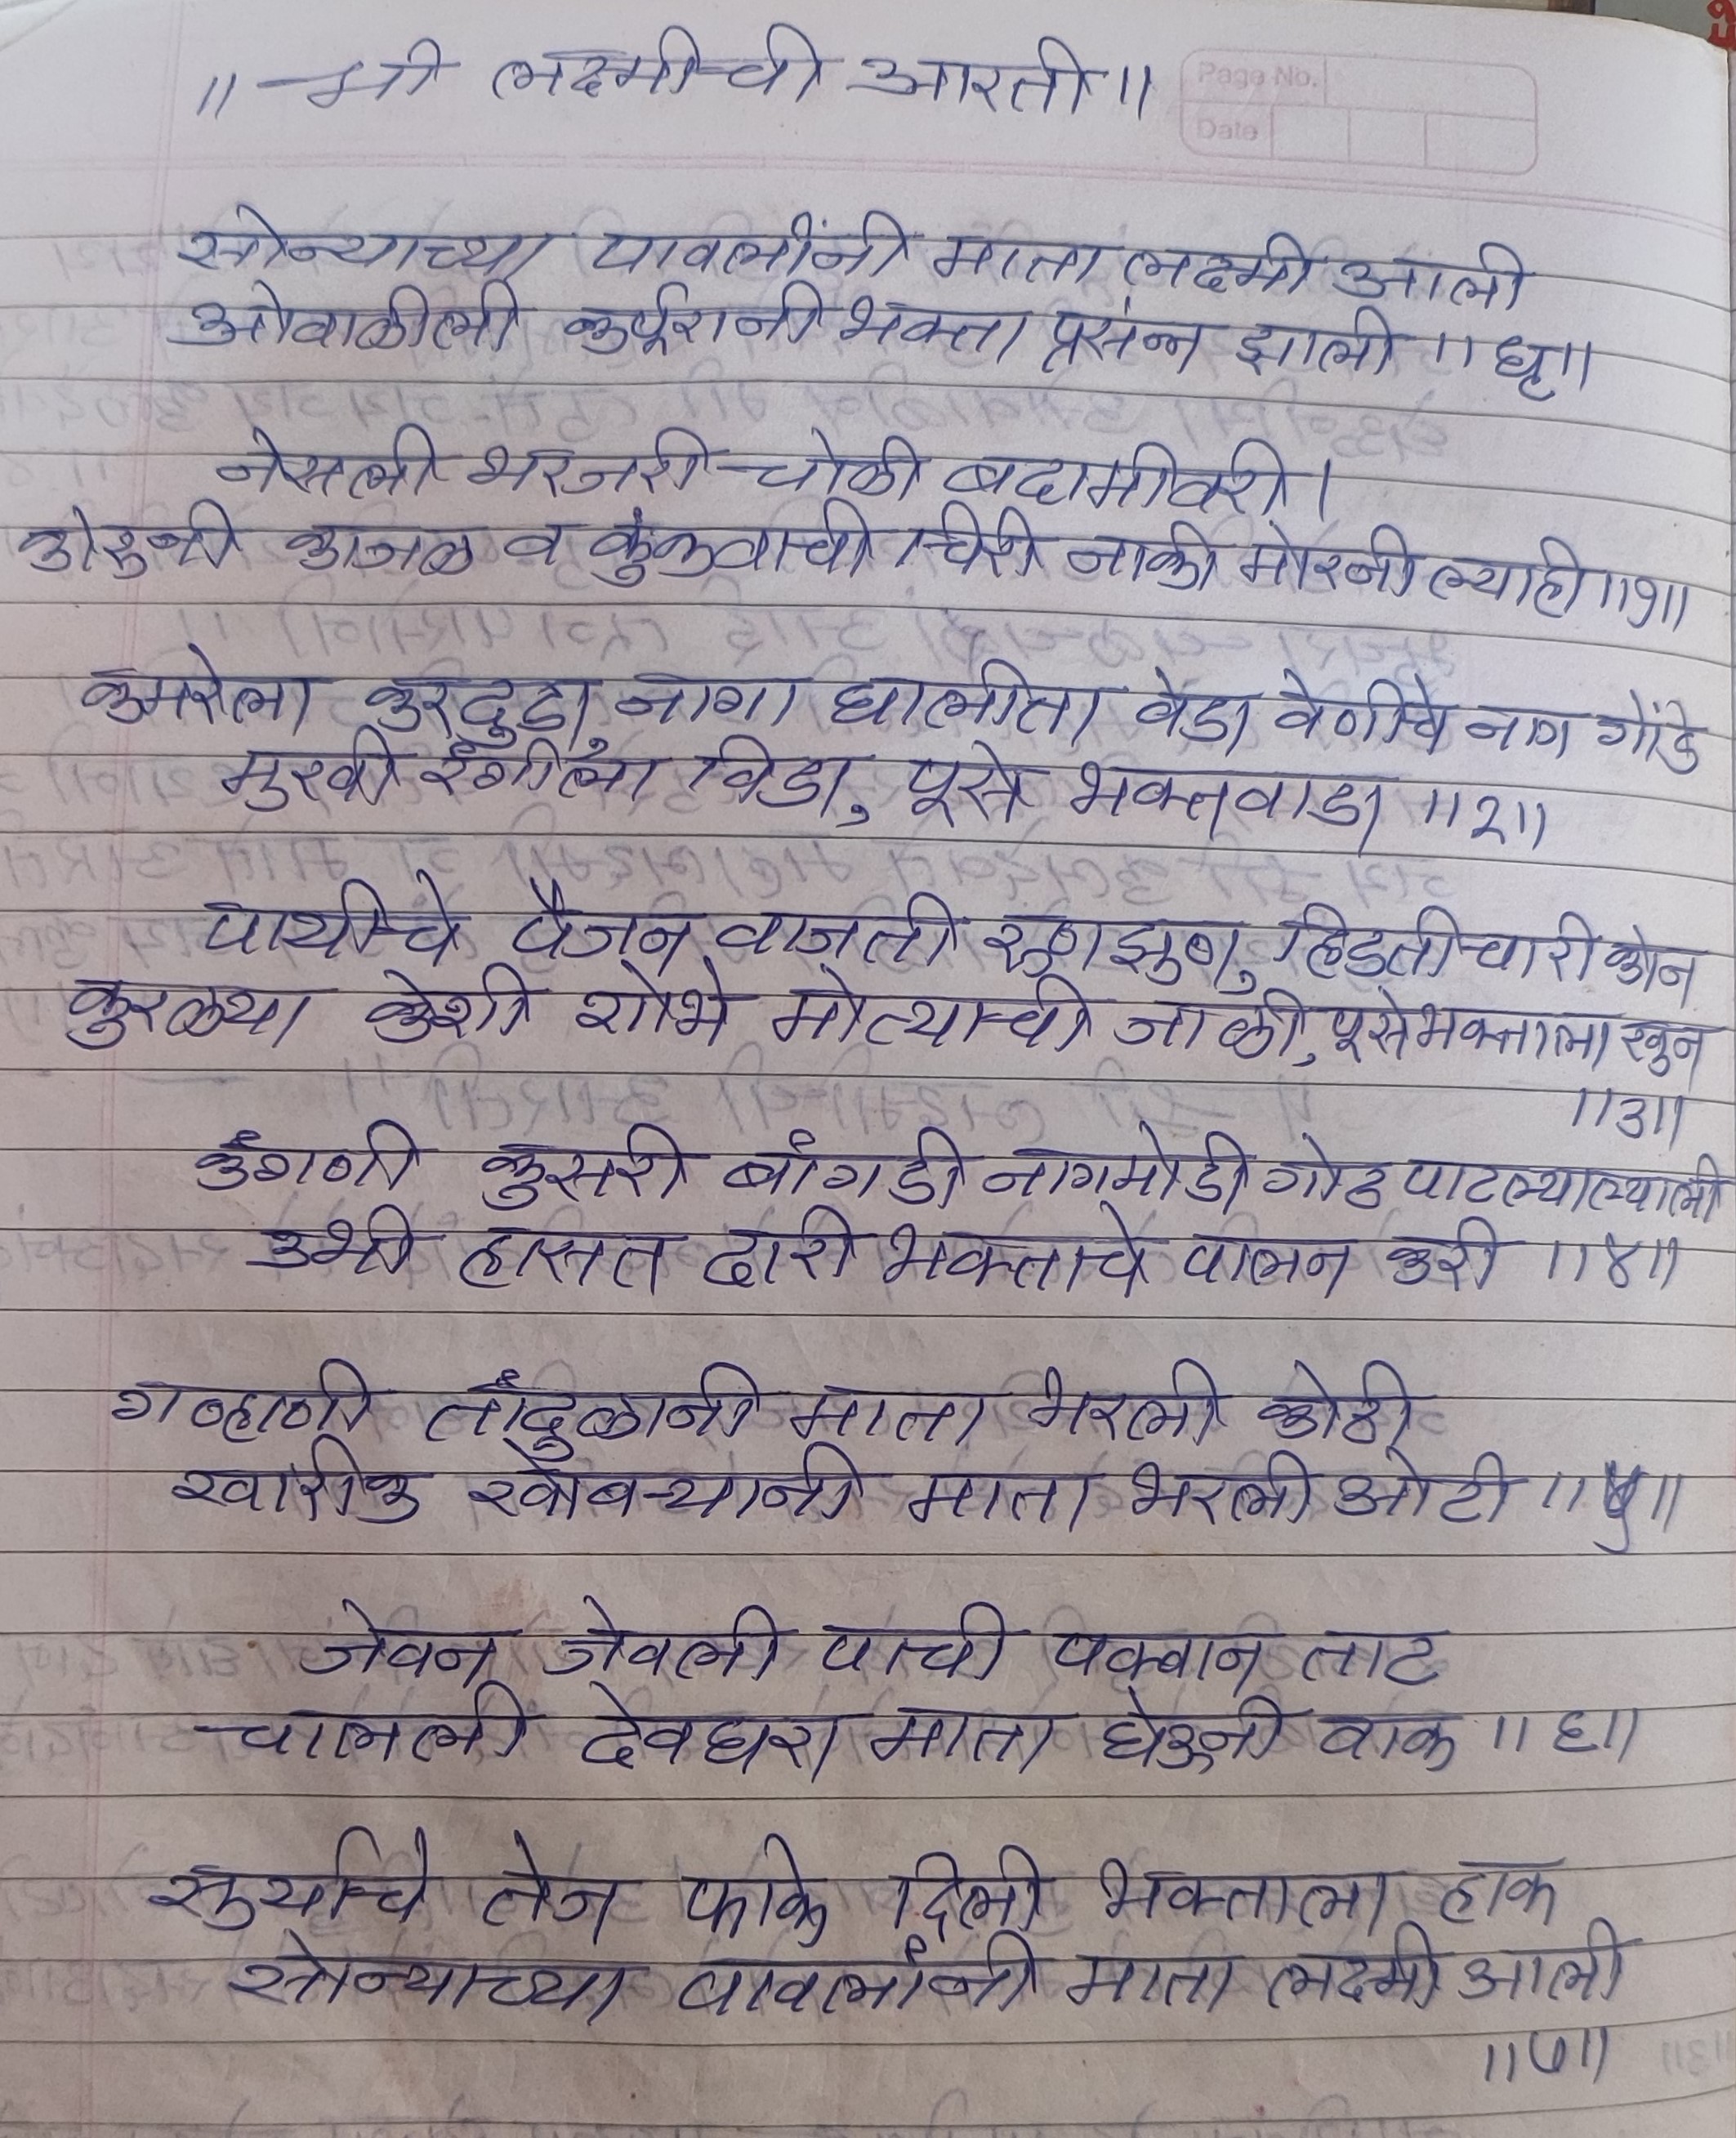 ॥ श्री लक्ष्मीची आरती ॥
Page No.
Date
सोन्याच्या पावलांनी माता लक्ष्मी आली
ओवाळीली कर्पूरानी भक्ता प्रसंन्न झाली ॥ धृ॥
नेसली भरजरी चोळी बदामीवरी ।
कोरुनी काजळ व कुंकवाची चिरी नाकी मोरनी ल्याही ॥१॥
कमरेला करदुडा, नागा घालीता वेडा वेणीचे नाग गोंडे
मुखी रंगीला विडा, पूसे भक्तवाडा ॥२॥
पायीचे पैजन वाजती रूणझुण, हिडती चारी कोन
कुरळया केशी शोभे मोत्याची जाळी, पूसे भक्ताला खुन
॥३॥
कंगणी कुसरी बांगडी नागमोडी गोठ पाटल्याल्याली
उभी हासत दारी भक्ताचे पालन करी ॥४॥
गव्हाणी तांदुळानी माता भरली कोठी
खारीक खोबऱ्यानी माता भरली ओटी ॥५॥
जेवन जेवली पाची पक्वान ताट
चालली देवघरा माता घेऊनी वाक ॥६॥
सुर्याचे तेज फाके दिली भक्ताला हाक
सोन्याच्या पावलांनी माता लक्ष्मी आली
॥७॥